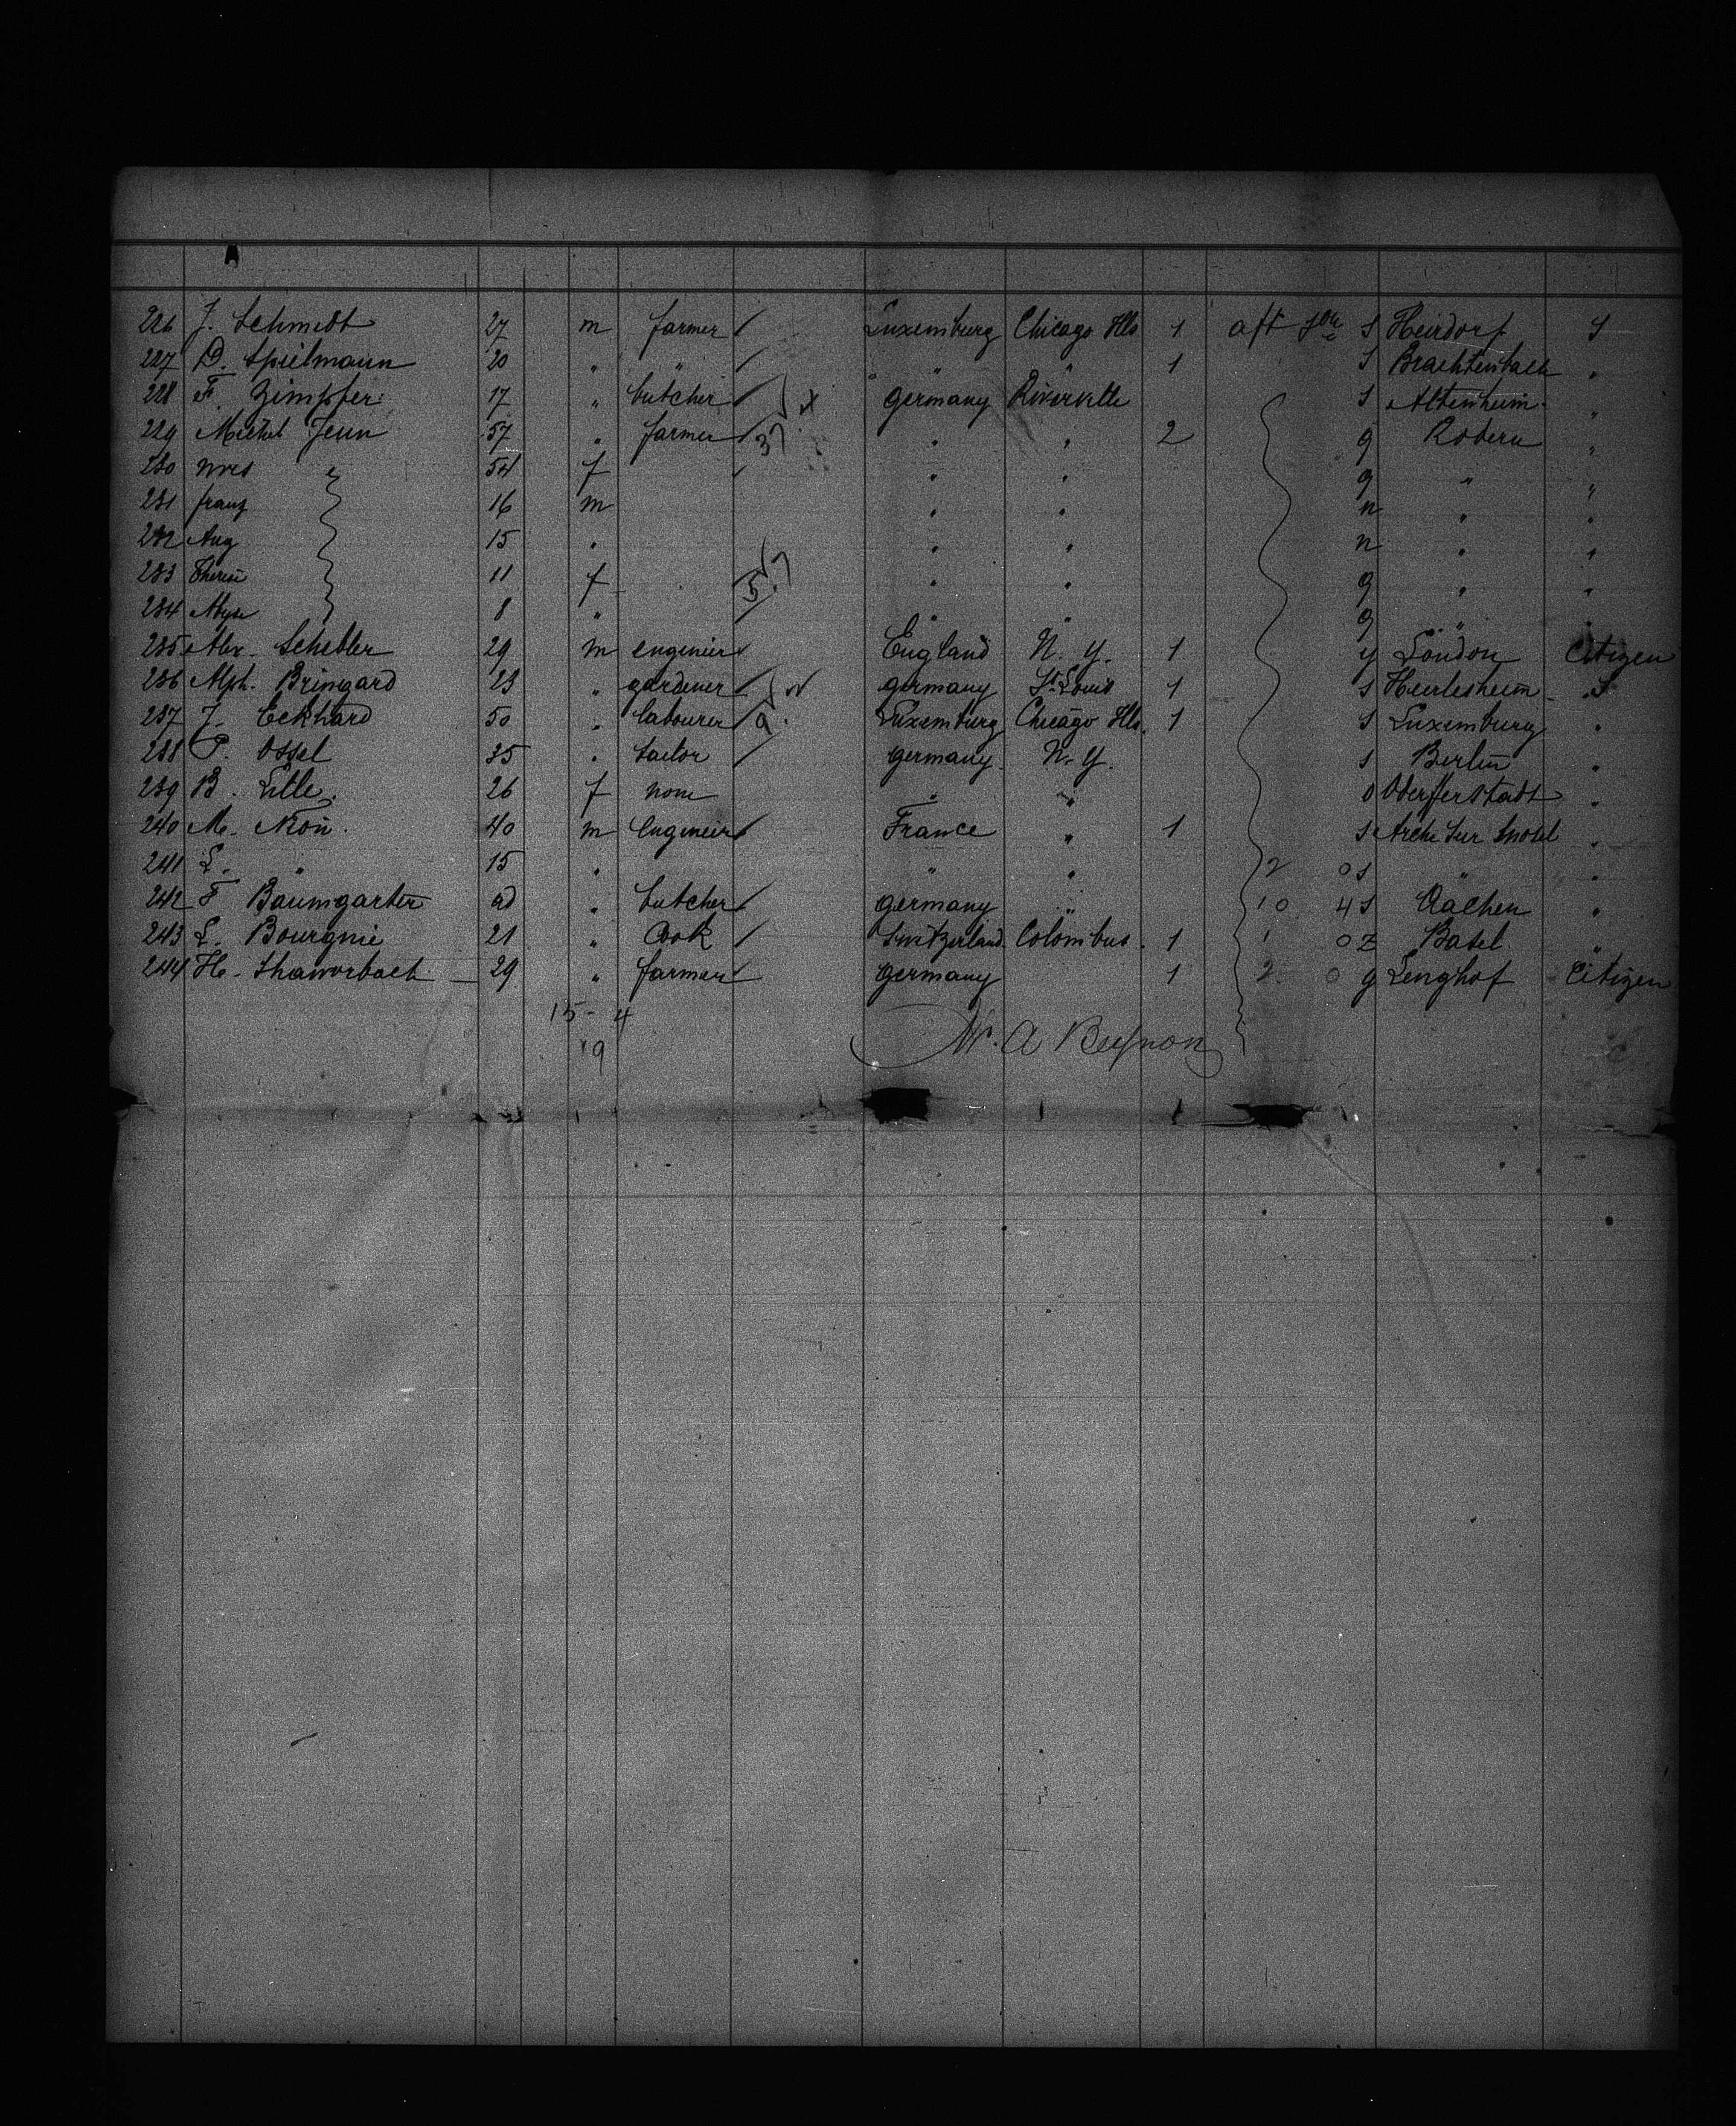 226 J. Schmidt 27 m farmer / Luxemburg Chicago Ills 1 aft S Heirdorf S
227 D. Spielmann 20 " " / " " 1 S Brachtenbach "
228 F. Zimpfer 17 " butcher / Germany Riverville S Altenheim "
229 Michel Jenn 57 " farmer / " " 2 g Robern "
230 Mrs " 54 f / " " g " "
231 franz 16 m " " n " "
232 Aug 15 " " " n " "
233 11 f 5 " " g " "
234 8 " / " " g " "
235 Alex. Schebler 29 m engenier / England N. Y. 1 y London Citizen
236 Alph. Bringard 23 " gardener / Germany St Louis 1 S S
237 J. Eckhard 50 " labourer / 9 Luxemburg Chicago Ills. 1 S Luxemburg "
238 P. Ossel 35 " tailor / Germany N. Y. S Berlin "
239 B. Lille 26 f none " " o "
240 M. 40 m Engineer / France " 1 S "
241 L. " 15 " " " 2 0 S " "
242 F Baumgarten " butcher / Germany " 10 4 S Aachen "
243 L. Bourgnie 21 " Cook / Switzerland Colombus 1 1 0 Z Basel "
244 29 " farmer / Germany 1 2 0 g Lenghof Citizen
15 - 4
19